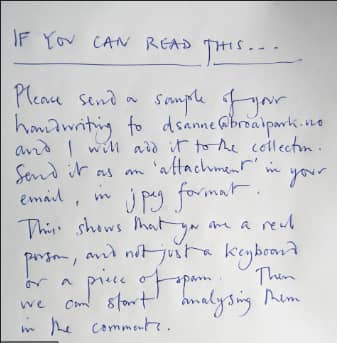 IF YOU CAN READ THIS...
Please send a sample of your
handwriting to dsanne@broadpark.no
and I will add it to the collection.
Send it as an 'attachment' in your
email, in jpeg format.
This shows that you are a real
person, and not just a keyboard
or a piece of spam. Then
we can start analysing them
in the comments.